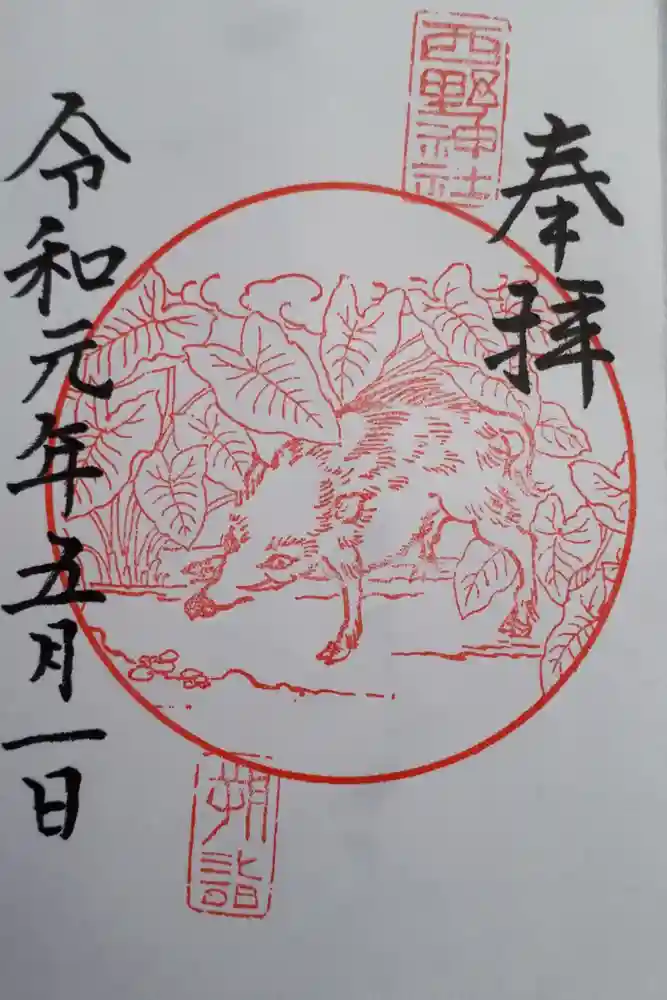 奉拝
西野神社
朔詣
令和元年五月一日